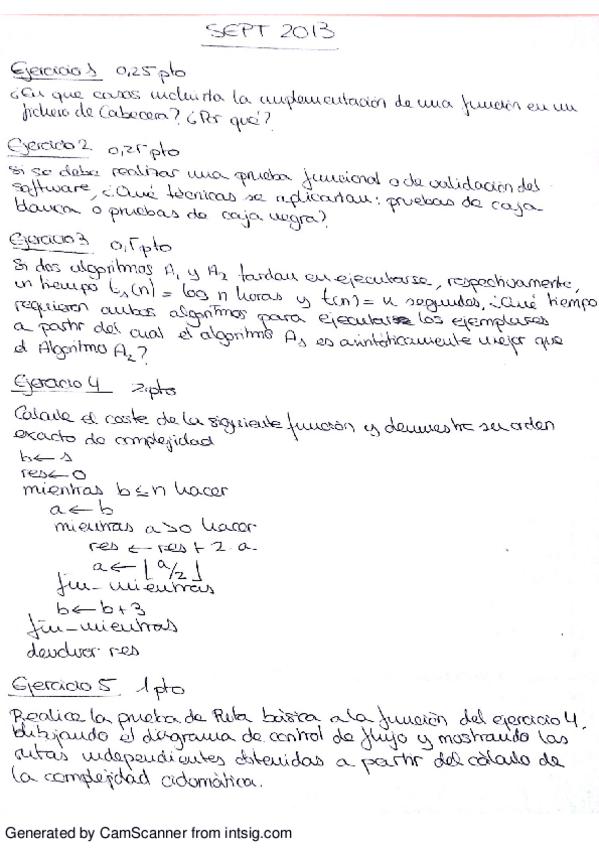 SEPT 2013
Ejercicio 1 0,25 pto
¿En que casos incluirta la implementación de una función en un
fichero de Cabecera? ¿Por qué?
Ejercicio 2 0,25 pto
Si se debe realizar una prueba funcional o de validación del
software, ¿Qué técnicas se aplicarían: pruebas de caja
blanca o pruebas de caja negra?
Ejercicio 3 0,5 pto
Si dos algoritmos A₁ y A₂ tardan en ejecutarse, respectivamente,
un tiempo t₁(n) = log n horas y t(n) = n segundos, ¿Qué tiempo
requieren ambos algoritmos para ejecutarse los ejemplares
a partir del cual el algoritmo A₁ es asintóticamente mejor que
el Algoritmo A₂?
Ejercicio 4 2 pto
Calcule el coste de la siguiente función y demuestre su orden
exacto de complejidad
b ← 1
res ← 0
mientras b ≤ n hacer
a ← b
mientras a > 0 hacer
res ← res + 2 · a
a ← ⌊a/2⌋
fin-mientras
b ← b + 3
fin-mientras
devolver res
Ejercicio 5 1 pto
Realice la prueba de Ruta básica a la función del ejercicio 4,
dibujando el diagrama de control de flujo y mostrando las
rutas independientes obtenidas a partir del cálculo de
la complejidad ciclomática.
Generated by CamScanner from intsig.com